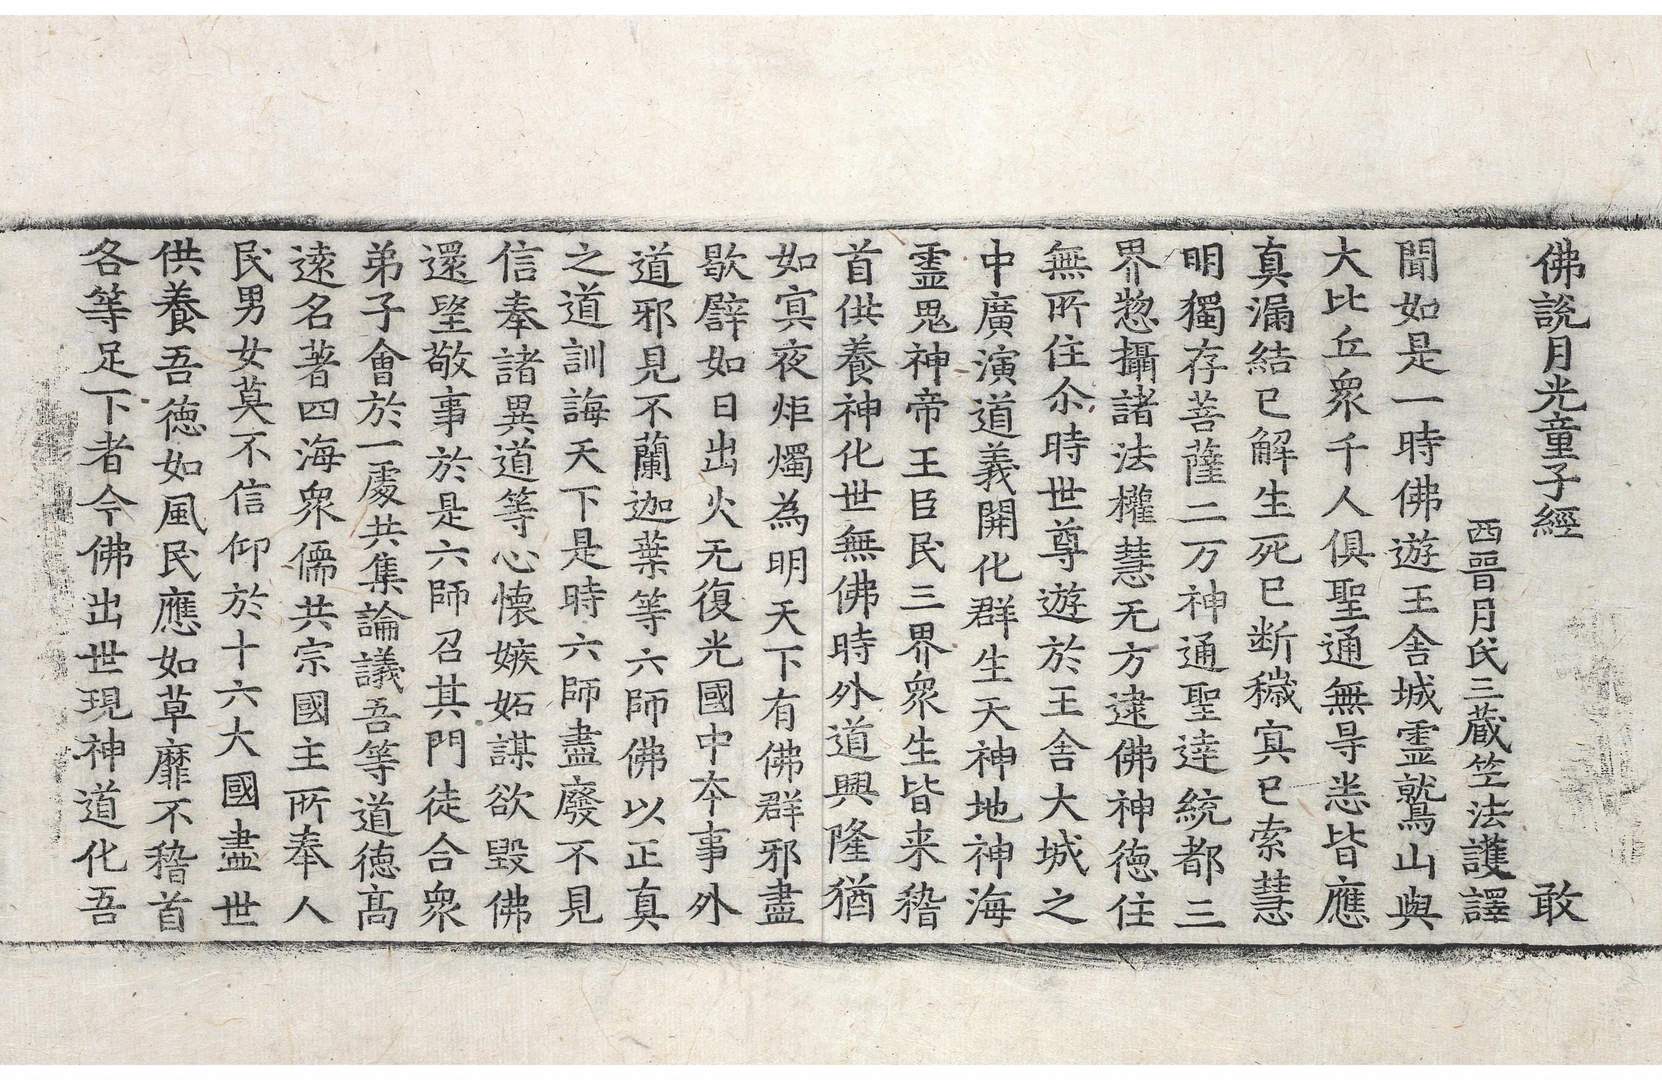 佛說月光童子經　敢
西晉月氏三藏笁法護譯
聞如是一時佛遊王舍城霊鷲山與
大比丘衆千人俱聖通無㝵悉皆應
真漏結已解生死已断穢㝠已索慧
明獨存菩薩二万神通聖逹統都三
界惣攝諸法權慧无方逮佛神德住
無所住尒時世尊遊於王舍大城之
中廣演道義開化群生天神地神海
霊鬼神帝王臣民三界衆生皆来稽
首供養神化世無佛時外道興隆猶
如㝠夜炬燭為明天下有佛群邪盡
歇譬如日出火无復光國中夲事外
道邪見不蘭迦葉等六師佛以正真
之道訓誨天下是時六師盡廢不見
信奉諸異道等心懷嫉妬謀欲毀佛
還望敬事於是六師召其門徒合衆
弟子會於一處共集論議吾等道德髙
逺名著四海衆儒共宗國主所奉人
民男女莫不信仰於十六大國盡世
供養吾德如風民應如草靡不稽首
各等足下者今佛出世現神道化吾